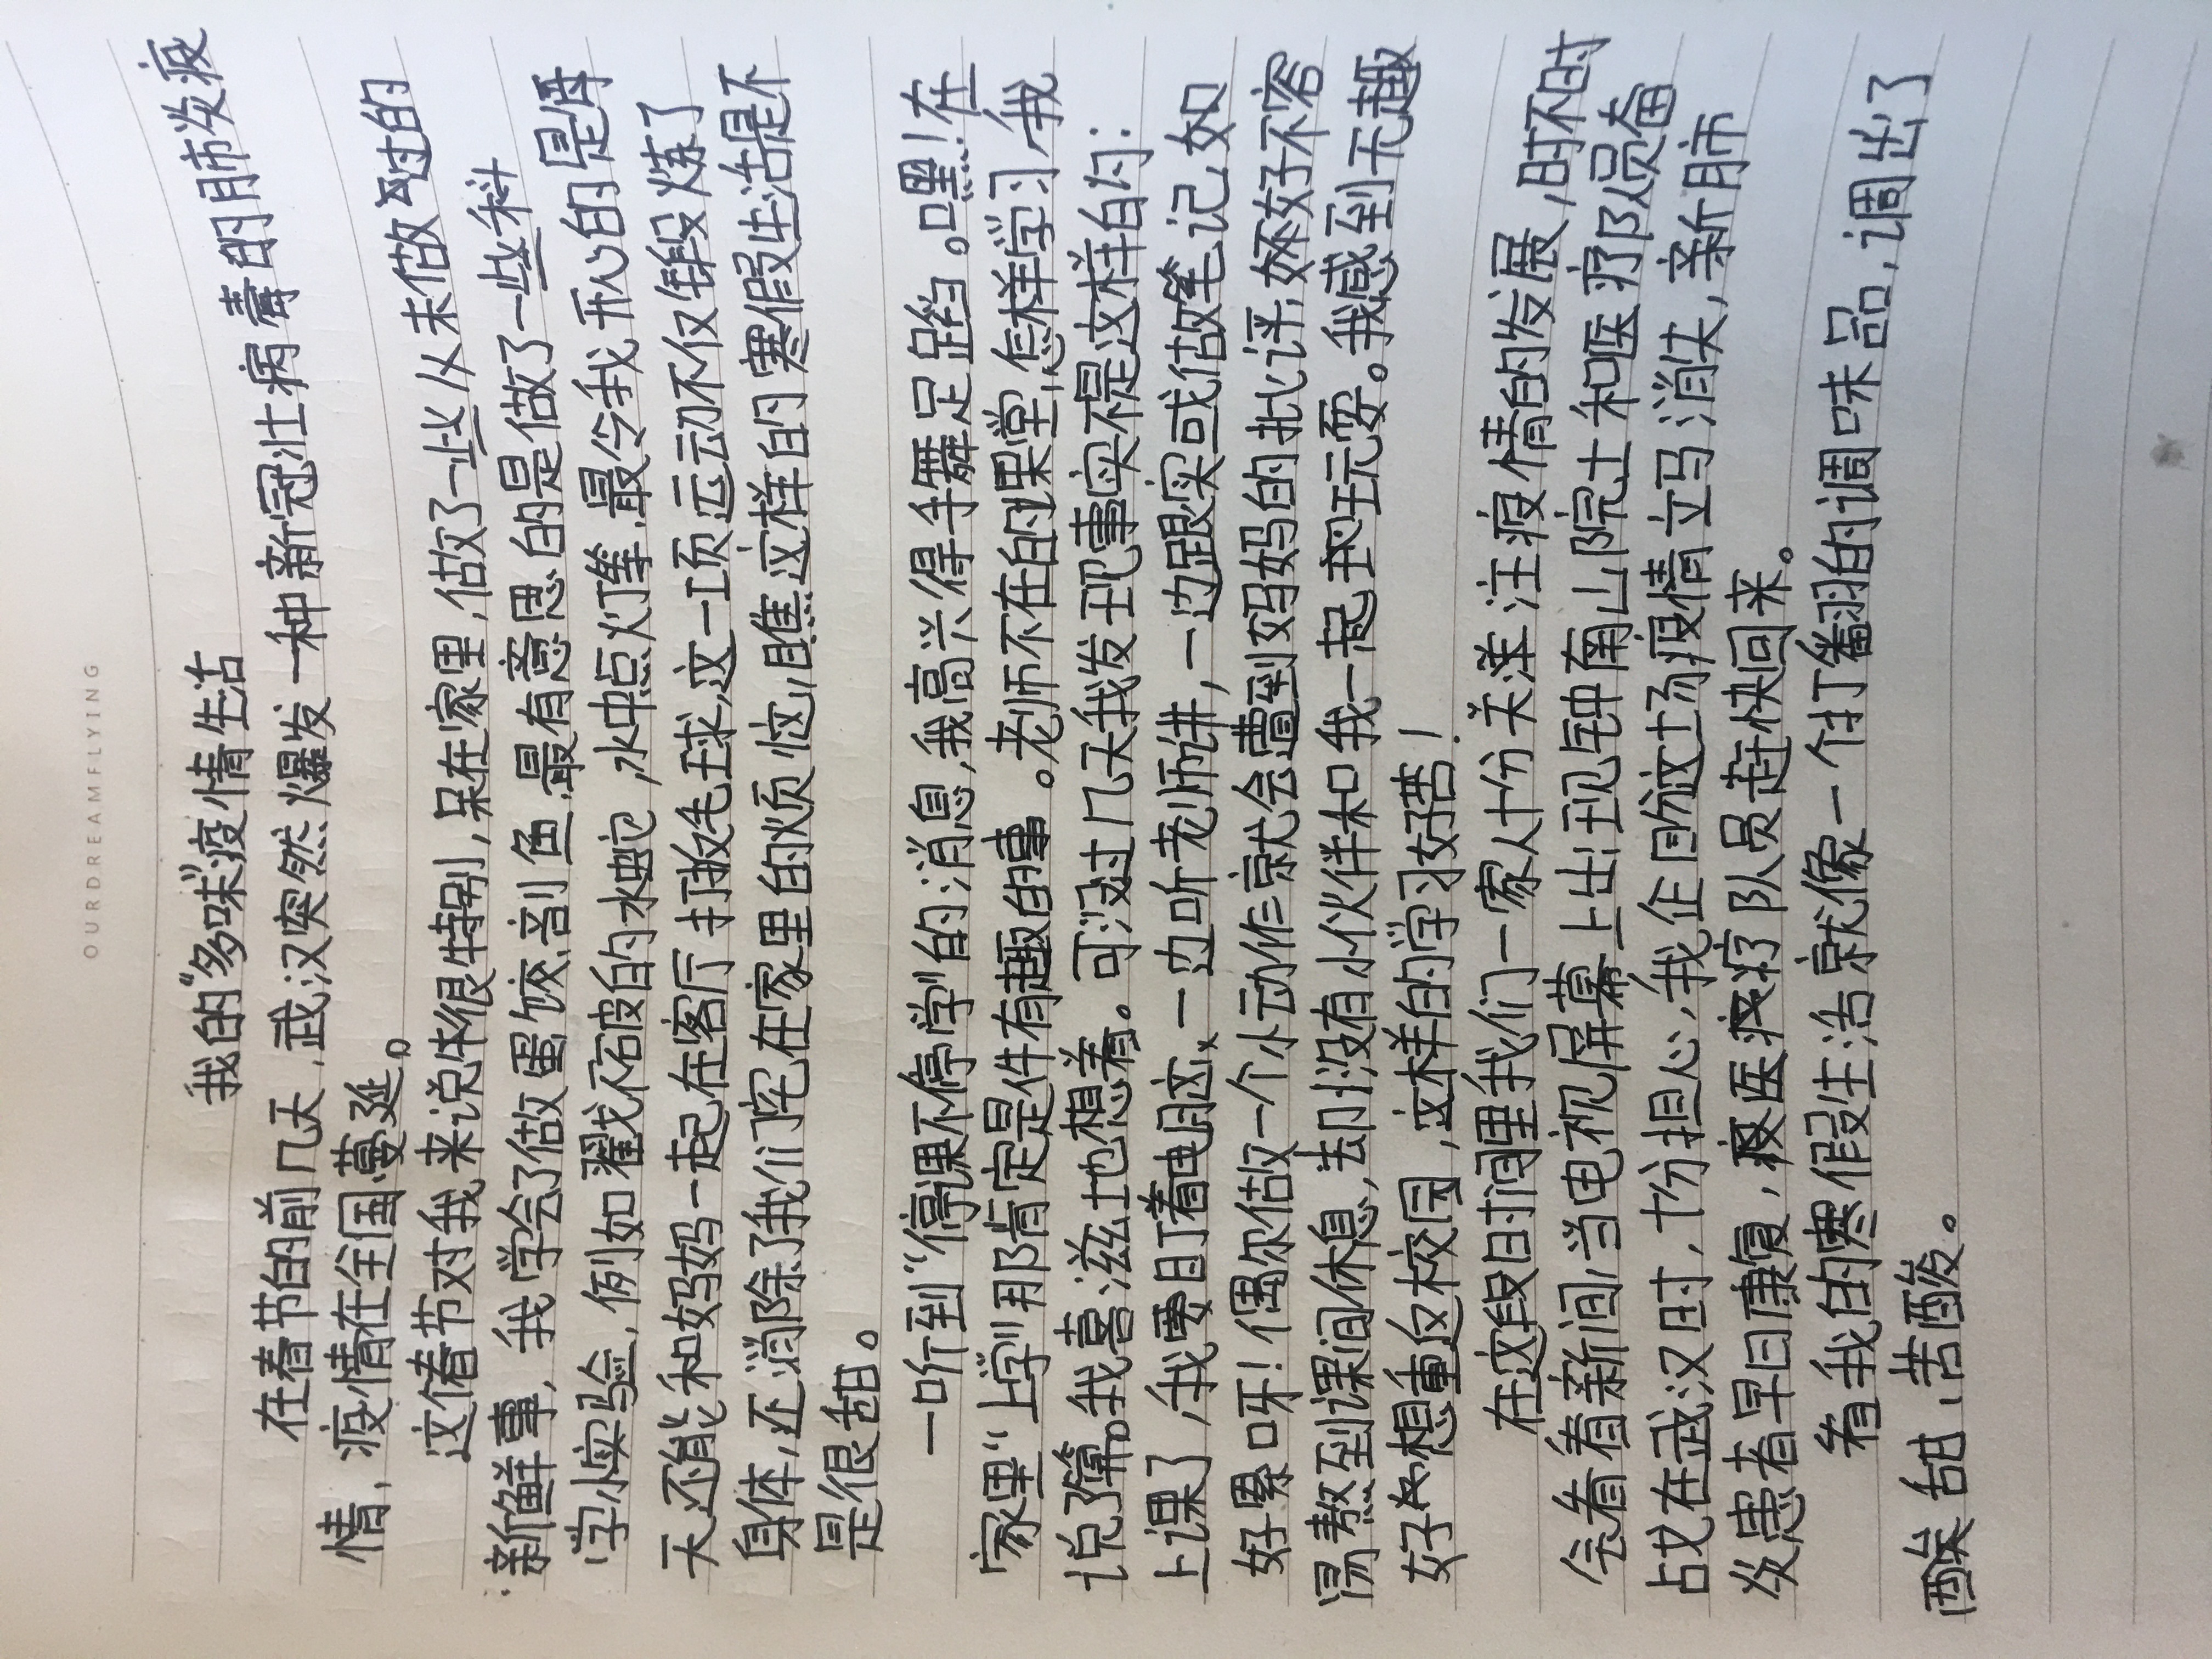 OURDREAMFLYING
我的“多味”疫情生活
在春节的前几天，武汉突然爆发一种新冠壮病毒的肺炎疫
情，疫情在全国蔓延。
这个春节对我来说很特别，呆在家里，做了一些从未做过的
新鲜事，我学会了做蛋饺、剖鱼，最有意思的是做了一些科
学小实验，例如戳不破的水蛇，水中点灯等，最令我开心的是每
天还能和妈妈一起在客厅打羽毛球，这一项运动不仅锻炼了
身体，还消除了我们宅在家里的烦恼，瞧这样的寒假生活是不
是很甜。
一听到“停课不停学”的消息，我高兴得手舞足蹈。嘿！在
家里“上学”那肯定是件有趣的事。老师不在的课堂，怎样学习，我
说了算。我喜滋滋地想着。可没过几天我发现事实不是这样的：
上课了，我要盯着电脑，一边听老师讲，一边跟读或做笔记，如
好累呀！偶尔做一个小动作就会遭到妈妈的批评，好不容
易熬到课间休息，却没有小伙伴和我一起玩耍。我感到无趣
好想重返校园，这样的学习好苦！
在这段时间里我们一家人十分关注疫情的发展，时不时
会看看新闻，当电视屏幕上出现钟南山院士和医疗队员奋
战在武汉时，十分担心，我企图这场疫情立马消失，新肺
炎患者早日康复，医疗队员赶快回来。
看我的寒假生活就像一个打翻的调味品，调出了
酸甜、苦酸。